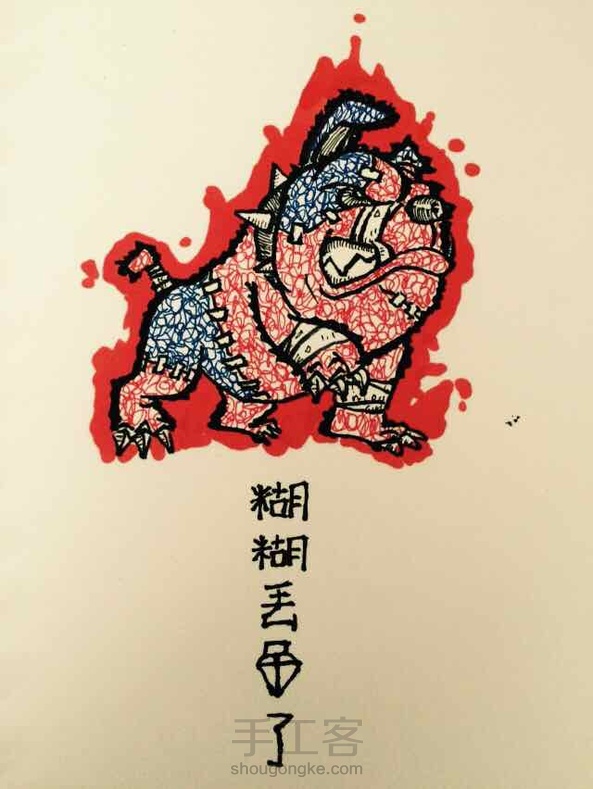 糊糊丢了
手工客
shougongke.com